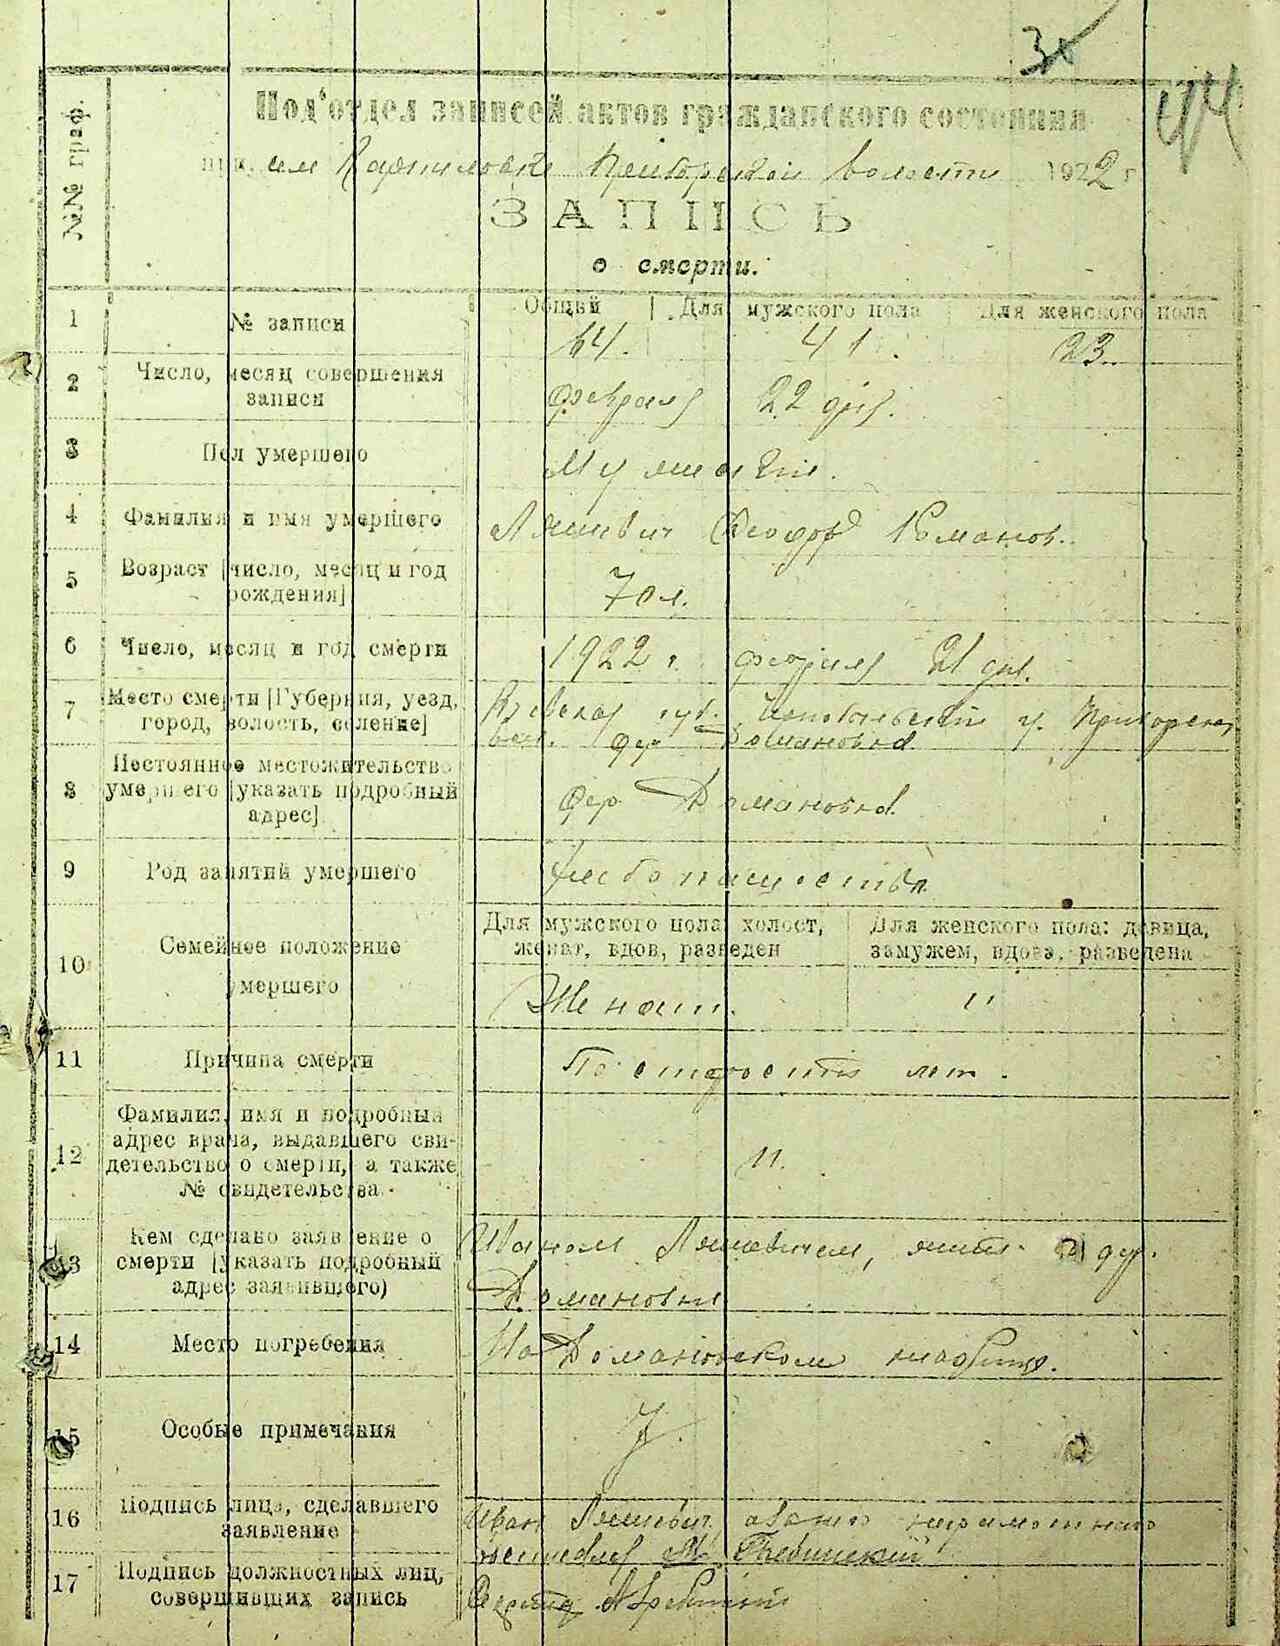 30
44
№№ граф.
Под'отдел записей актов гражданского состояния
при волости 1922 г.
ЗАПИСЬ
о смерти.
1 № записи Общий Для мужского пола Для женского пола
64. 41. 23.
2 Число, месяц совершения
записи
февраля 22 дня.
3 Пол умершего
4 Фамилия и имя умершего
Ляшевич Феодор Романов.
5 Возраст [число, месяц и год
рождения]
70 л.
6 Число, месяц и год смерти
1922 г. февраля 21 дня.
7 Место смерти [Губерния, уезд,
город, волость, селение]
губ. у.
вол. дер Домановка
8 Постоянное местожительство
умершего [указать подробный
адрес]
дер Домановка
9 Род занятий умершего
10 Семейное положение
умершего
Для мужского пола: холост,
женат, вдов, разведен
Для женского пола: девица,
замужем, вдова, разведена
Женат. "
11 Причина смерти
По старости лет.
12 Фамилия, имя и подробный
адрес врача, выдавшего сви-
детельство о смерти, а также
№ свидетельства
".
13 Кем сделано заявление о
смерти [указать подробный
адрес заявившего)
Иваном Ляшевичем, жит. дер.
Домановки
14 Место погребения
На Домановском кладбище.
15 Особые примечания
16 Подпись лица, сделавшего
заявление
Иван Ляшевич, а за него неграмотного
17 Подпись должностных лиц,
совершивших запись